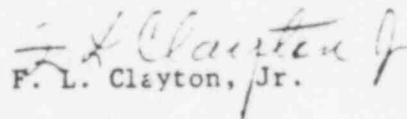 F L Clayton Jr
F. L. Clayton, Jr.